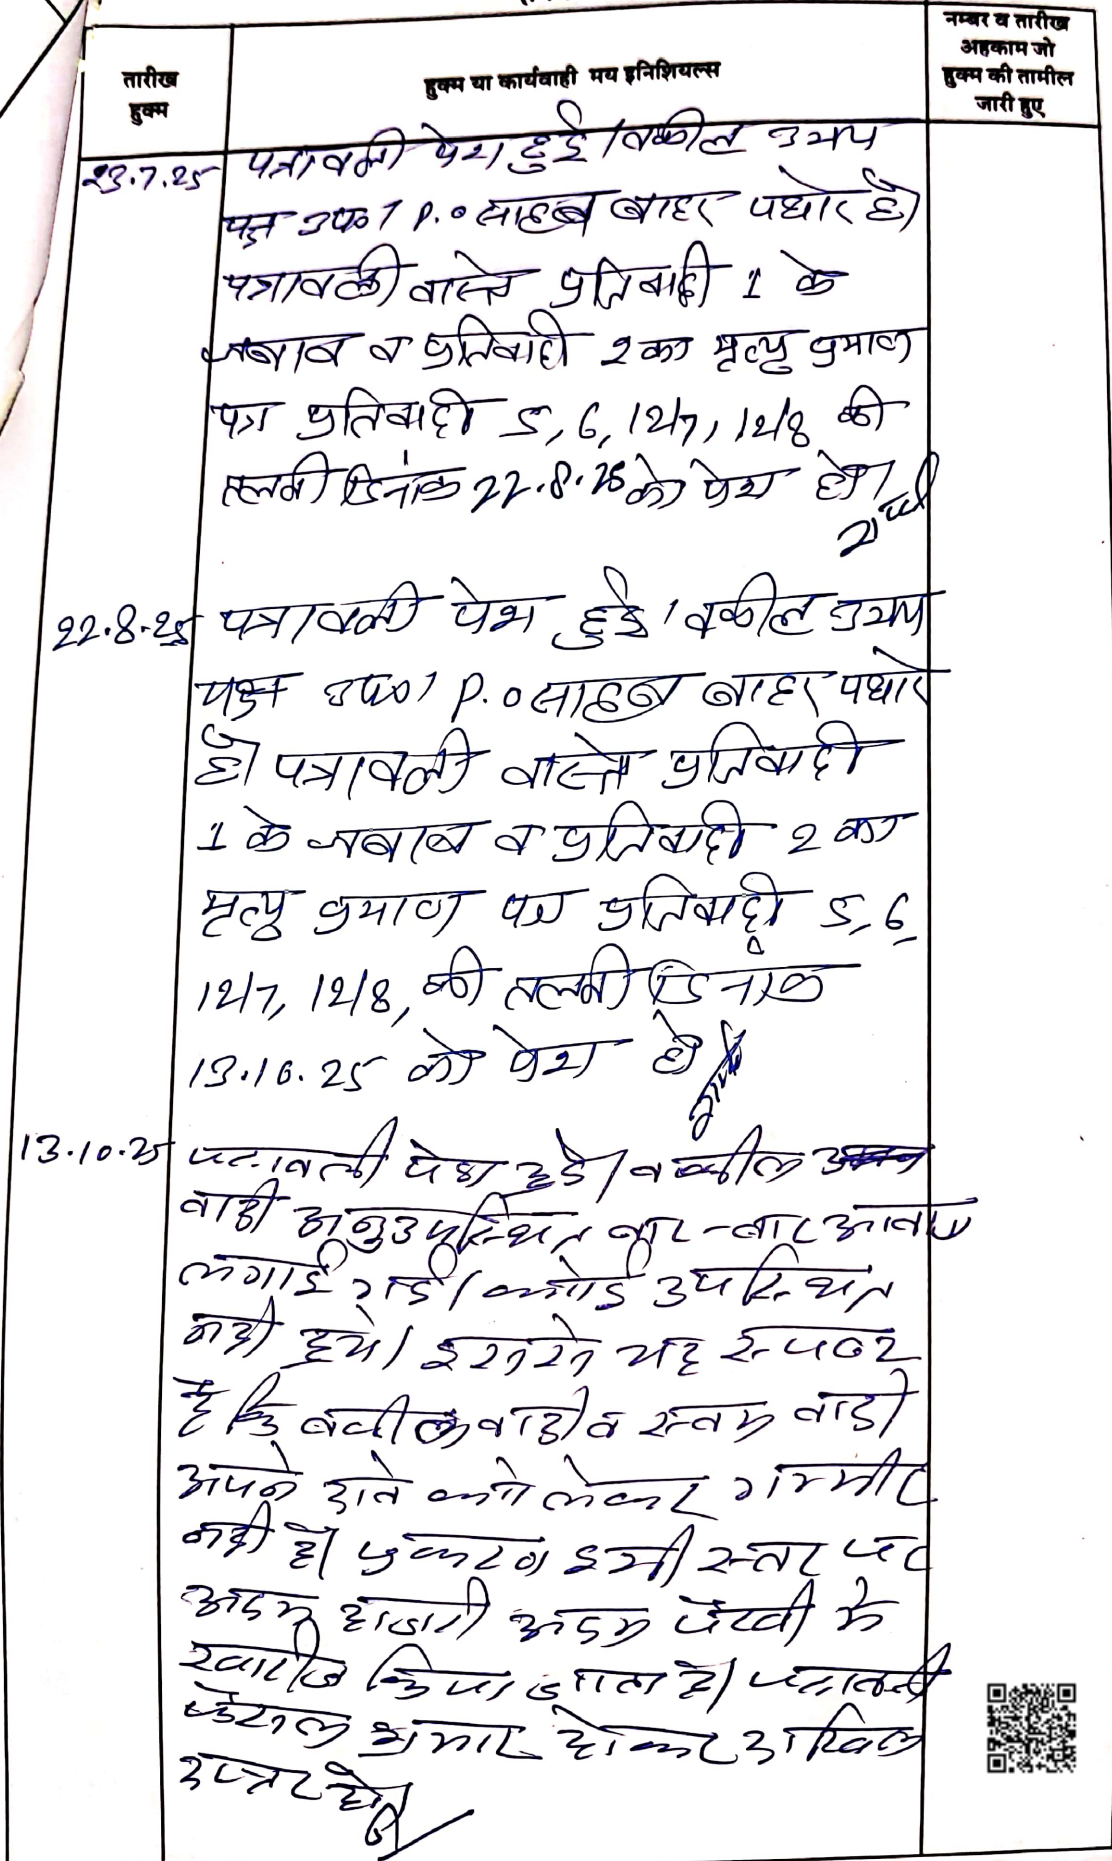 नम्बर व तारीख
अहकाम जो
हुक्म की तामील
जारी हुए
तारीख
हुक्म
हुक्म या कार्यवाही मय इनिशियल्स
23.7.25 पत्रावली पेश हुई। वकील उभय
पक्ष उप०। P.O साहब बाहर पधारे है।
पत्रावली वास्ते प्रतिवादी 1 के
जबाब व प्रतिवादी 2 का मृत्यु प्रमाण
पत्र प्रतिवादी 5, 6, 12/7, 12/8 की
तलबी दिनांक 22.8.25 को पेश हो।
22.8.25 पत्रावली पेश हुई। वकील उभय
पक्ष उप०। P.O साहब बाहर पधारे
है। पत्रावली वास्ते प्रतिवादी
1 के जबाब व प्रतिवादी 2 का
मृत्यु प्रमाण पत्र प्रतिवादी 5, 6,
12/7, 12/8, की तलबी दिनांक
13.10.25 को पेश हो
13.10.25 पत्रावली पेश हुई। वकील
वादी अनुउपस्थित बार-बार आवाज
लगाई गई। कोई उपस्थित
नही हुये। इससे यह स्पष्ट
है कि वकील वादी व स्वयं वादी
अपने दावे को लेकर गम्भीर
नही है। प्रकरण इसी स्तर पर
अदम हाजरी अदम पैरवी मे
खारीज किया जाता है। पत्रावली
फैसल शुमार होकर दाखिल
दफ्तर हो।